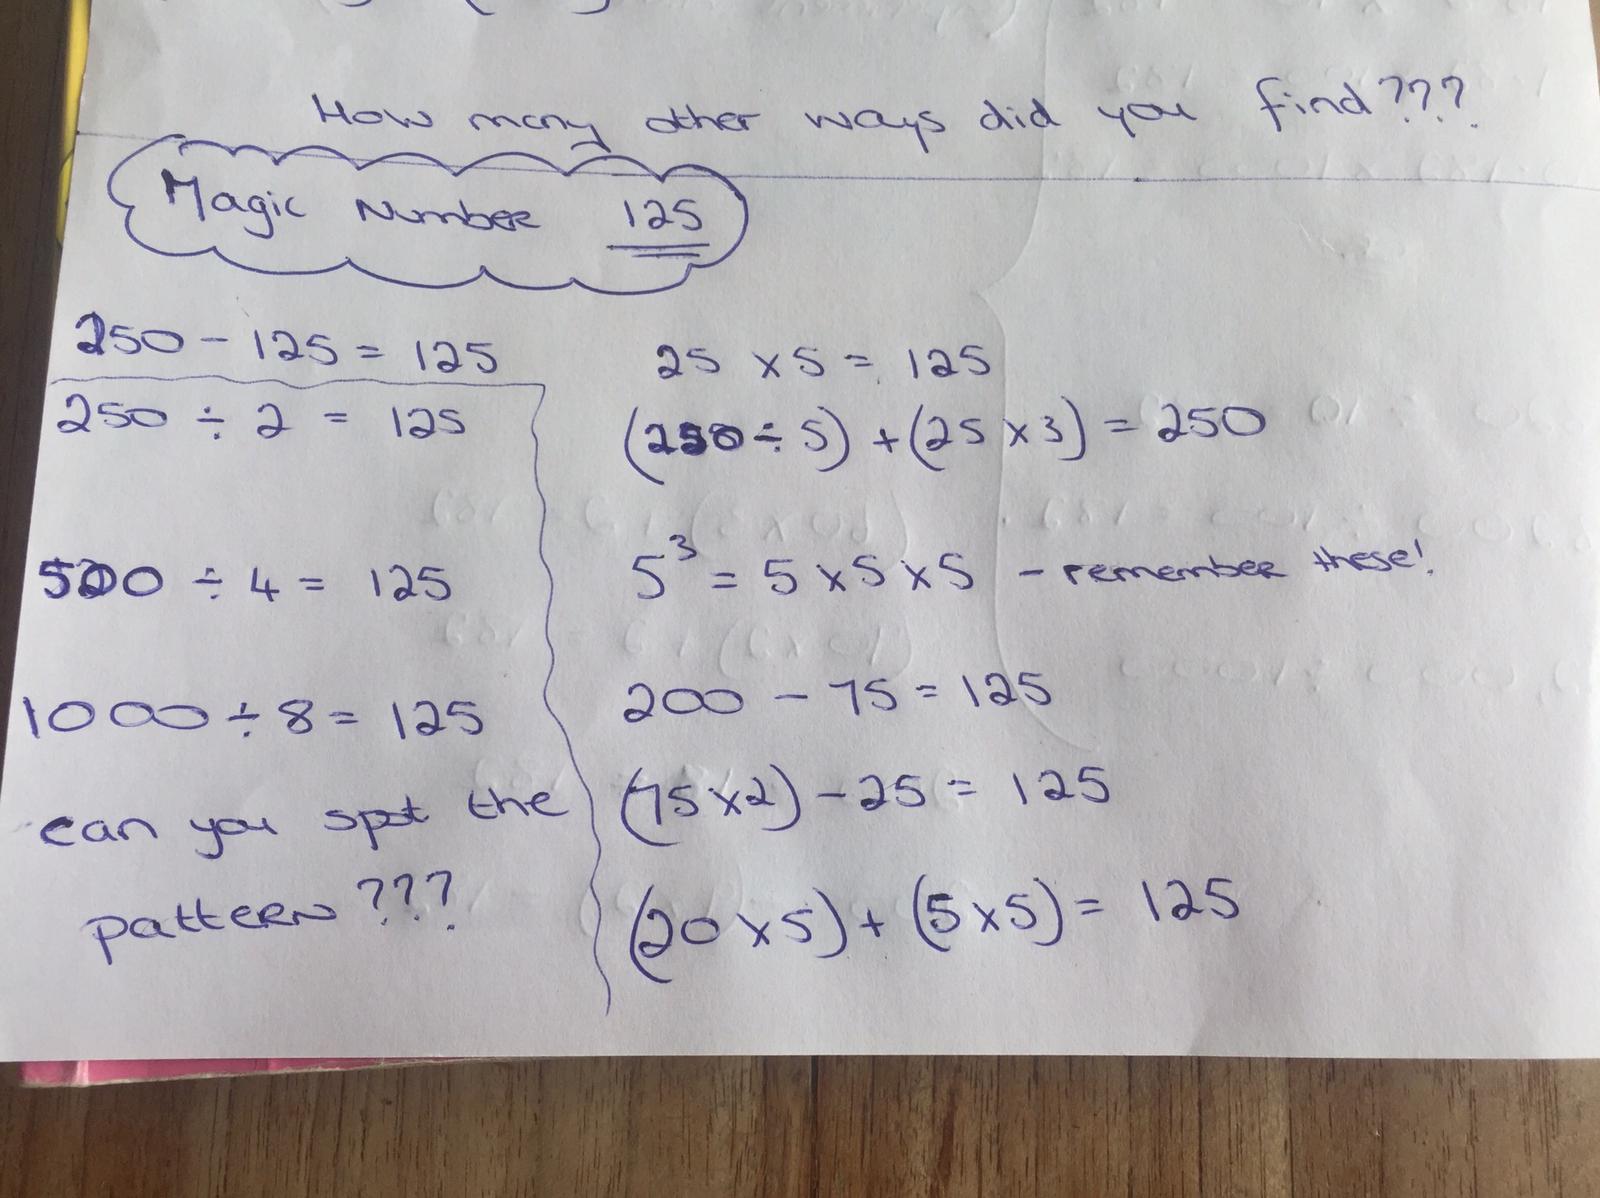 How many other ways did you find???
Magic Number 125
250 - 125 = 125
250 ÷ 2 = 125
500 ÷ 4 = 125
1000 ÷ 8 = 125
can you spot the
pattern???
25 x 5 = 125
(250 ÷ 5) + (25 x 3) = 250
5³ = 5 x 5 x 5 - remember these!
200 - 75 = 125
(75 x 2) - 25 = 125
(20 x 5) + (5 x 5) = 125